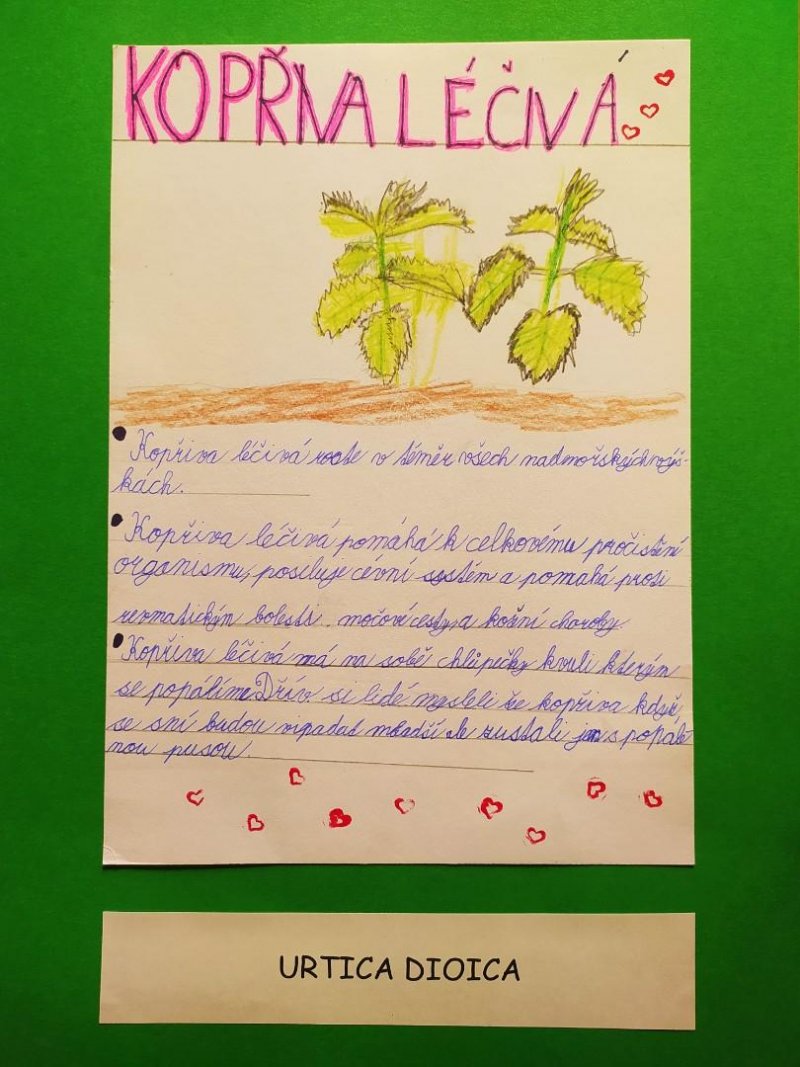 KOPŘIVA LÉČIVÁ
Kopřiva léčivá roste v téměr všech nadmořských výš-
kách.
Kopřiva léčivá pomáhá k celkovému pročistění
organismu, posiluje cévní systém a pomahá proti
revmatickým bolesti. močové cesty, a kožní choroby.
Kopřiva léčivá má na sobě chlupečky kvuli kterým
se popálíme. Dřív se lidé mysleli že kopřiva když
se sní budou vipadat mladší ale zustali jen s popále
nou pusou.
URTICA DIOICA